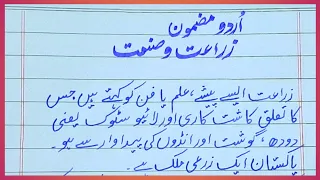 اُردو مضمون
زراعت و صنعت
زراعت ایسے پیشے، علم یا فن کو کہتے ہیں جس
کا تعلق کاشت کاری اور لائیو سٹوک یعنی
دودھ، گوشت اور انڈوں کی پیداوار سے ہو۔
پاکستان ایک زرعی ملک ہے۔